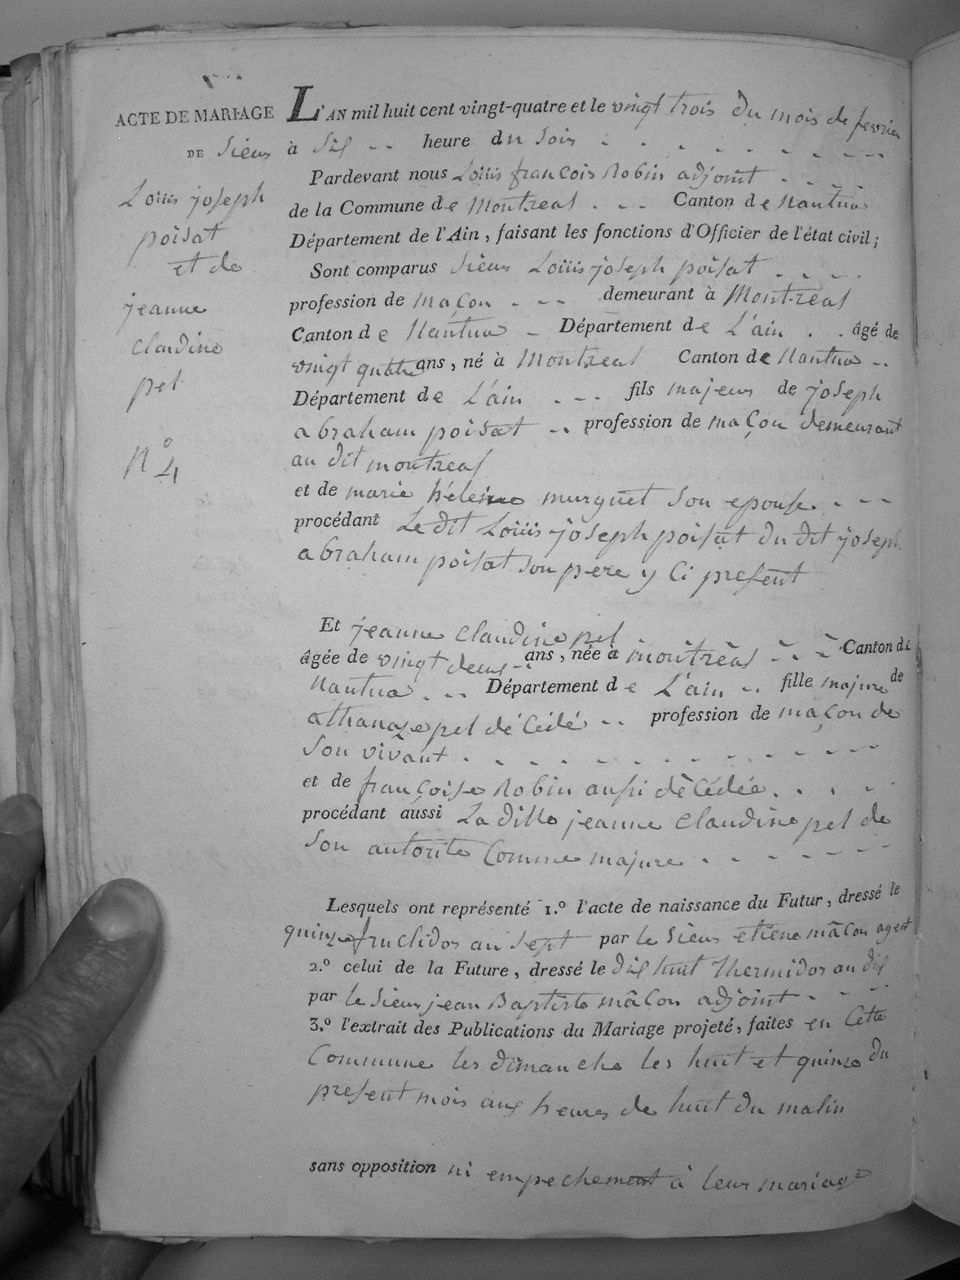 ACTE DE MARIAGE
DE Sieur
Louis joseph
poisat
et de
jeanne
claudine
pel
N° 4
L'AN mil huit cent vingt-quatre et le vingt trois du mois de fevrier
à six -- heure du soir
Pardevant nous Louis françois Robin adjoint
de la Commune de Montreal - - - Canton de Nantua
Département de l'Ain, faisant les fonctions d'Officier de l'état civil;
Sont comparus Sieur Louis joseph poisat
profession de maçon - - - demeurant à Montréal
Canton de Nantua - Département de L'ain . . âgé de
vingt quatre ans, né à Montreal Canton de Nantua --
Département de L'ain - - - fils majeur de joseph
abraham poisat -- profession de maçon demeurant
au dit montreal
et de marie hélène murguet son epouse - - -
procédant Le dit Louis joseph poisat du dit joseph
abraham poisat son pere y ci present
Et jeanne claudine pel
âgée de vingt deux - ans, née à montréal - - - Canton de
Nantua - - - Département de L'ain -- fille majure de
athanaze pel décédé -- profession de maçon de
son vivant
et de françoise Robin aussi décédée
procédant aussi La ditte jeanne claudine pel de
son autorite comme majure
Lesquels ont représenté 1.º l'acte de naissance du Futur, dressé le
quinze fruclidor an sept par le sieur etiene mâcon agent
2.º celui de la Future, dressé le dix huit Thermidor an dix
par le sieur jean Baptiste mâcon adjoint - - - -
3.º l'extrait des Publications du Mariage projeté, faites en cette
Commune les dimanche les huit et quinze du
present mois aux heures de huit du matin
sans opposition ni empechement à leur mariage